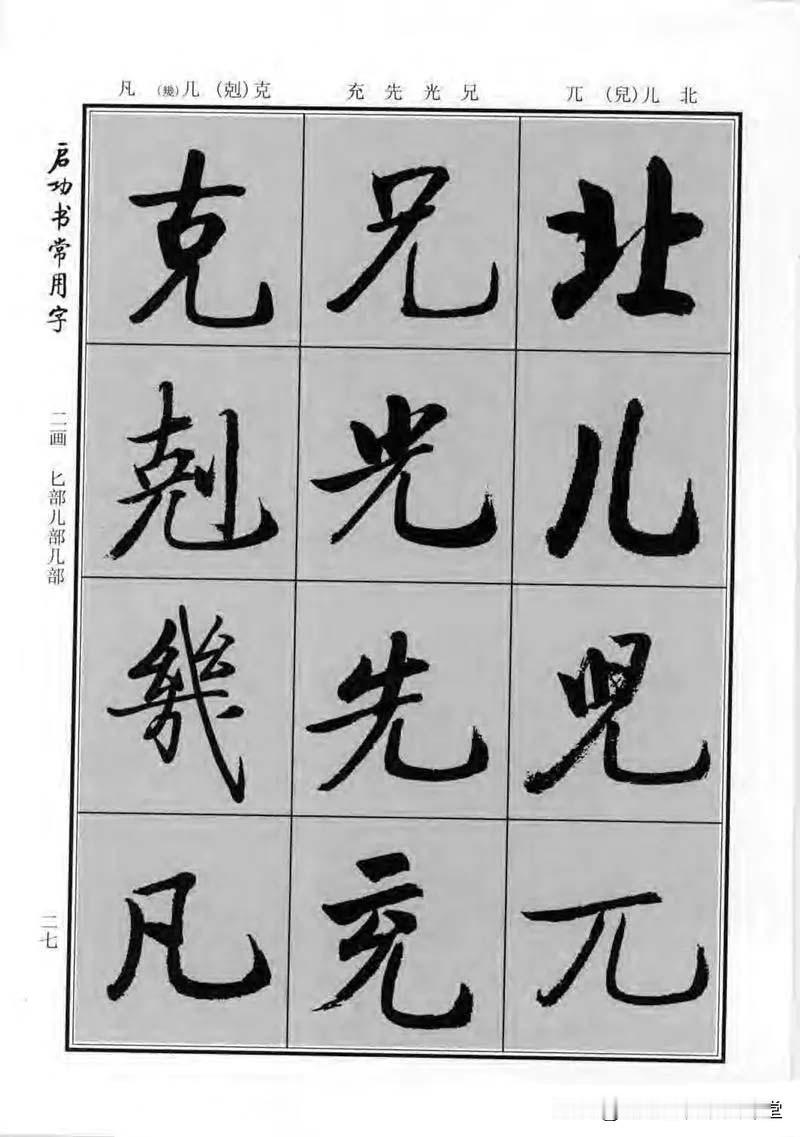 北 儿(兒) 兀 兄 光 先 充 克(剋) 几(幾) 凡
北儿兒兀
兄光先充
克剋幾凡
启功书常用字
二画 匕部儿部几部
二七